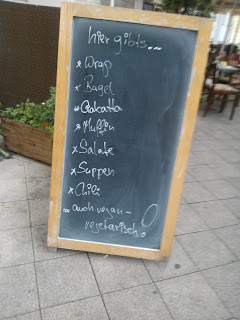 hier gibts...
* Wrap
* Bagel
* Ciabatta
* Muffin
* Salate
* Suppen
* Chili
... auch vegan-
vegetarisch!